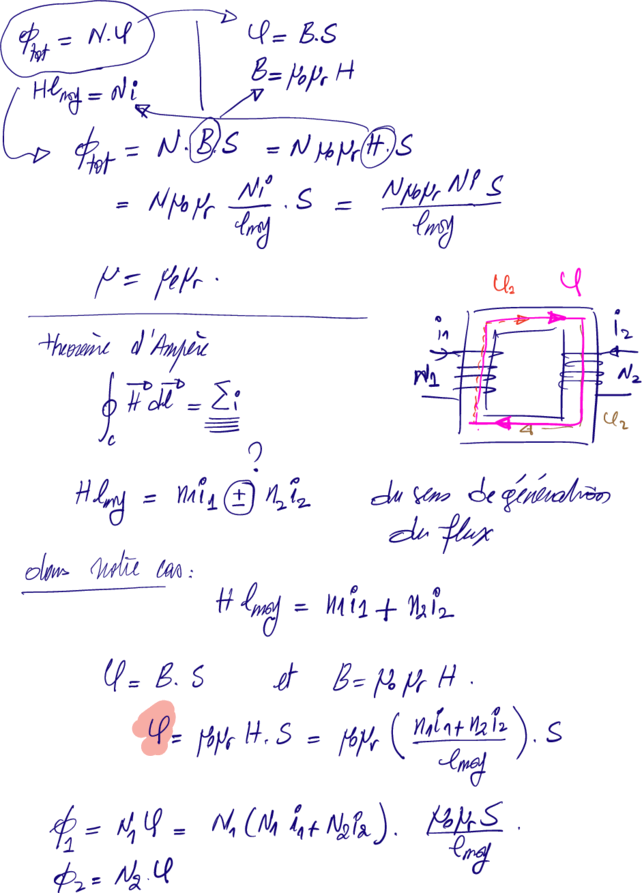 ϕtot = N.φ
φ = B.S
B = μ0μr H
Hlmoy = Ni
ϕtot = N.B.S = Nμ0μr H.S
= Nμ0μr Ni/lmoy . S = Nμ0μr Ni S/lmoy
μ = μ0μr .
φ2 φ
i1 i2
N1 N2
φ2
théorème d'Ampère
∮c H⃗ dl⃗ = Σi
?
Hlmoy = n1i1 ± n2i2 du sens de génération
du flux
dans notre cas :
H lmoy = n1i1 + n2i2
φ = B. S et B = μ0 μr H .
φ = μ0μr H. S = μ0μr ( n1i1+n2i2/lmoy ) . S
ϕ1 = N1φ = N1 (N1 i1+N2i2). μ0μr S/lmoy .
ϕ2 = N2.φ